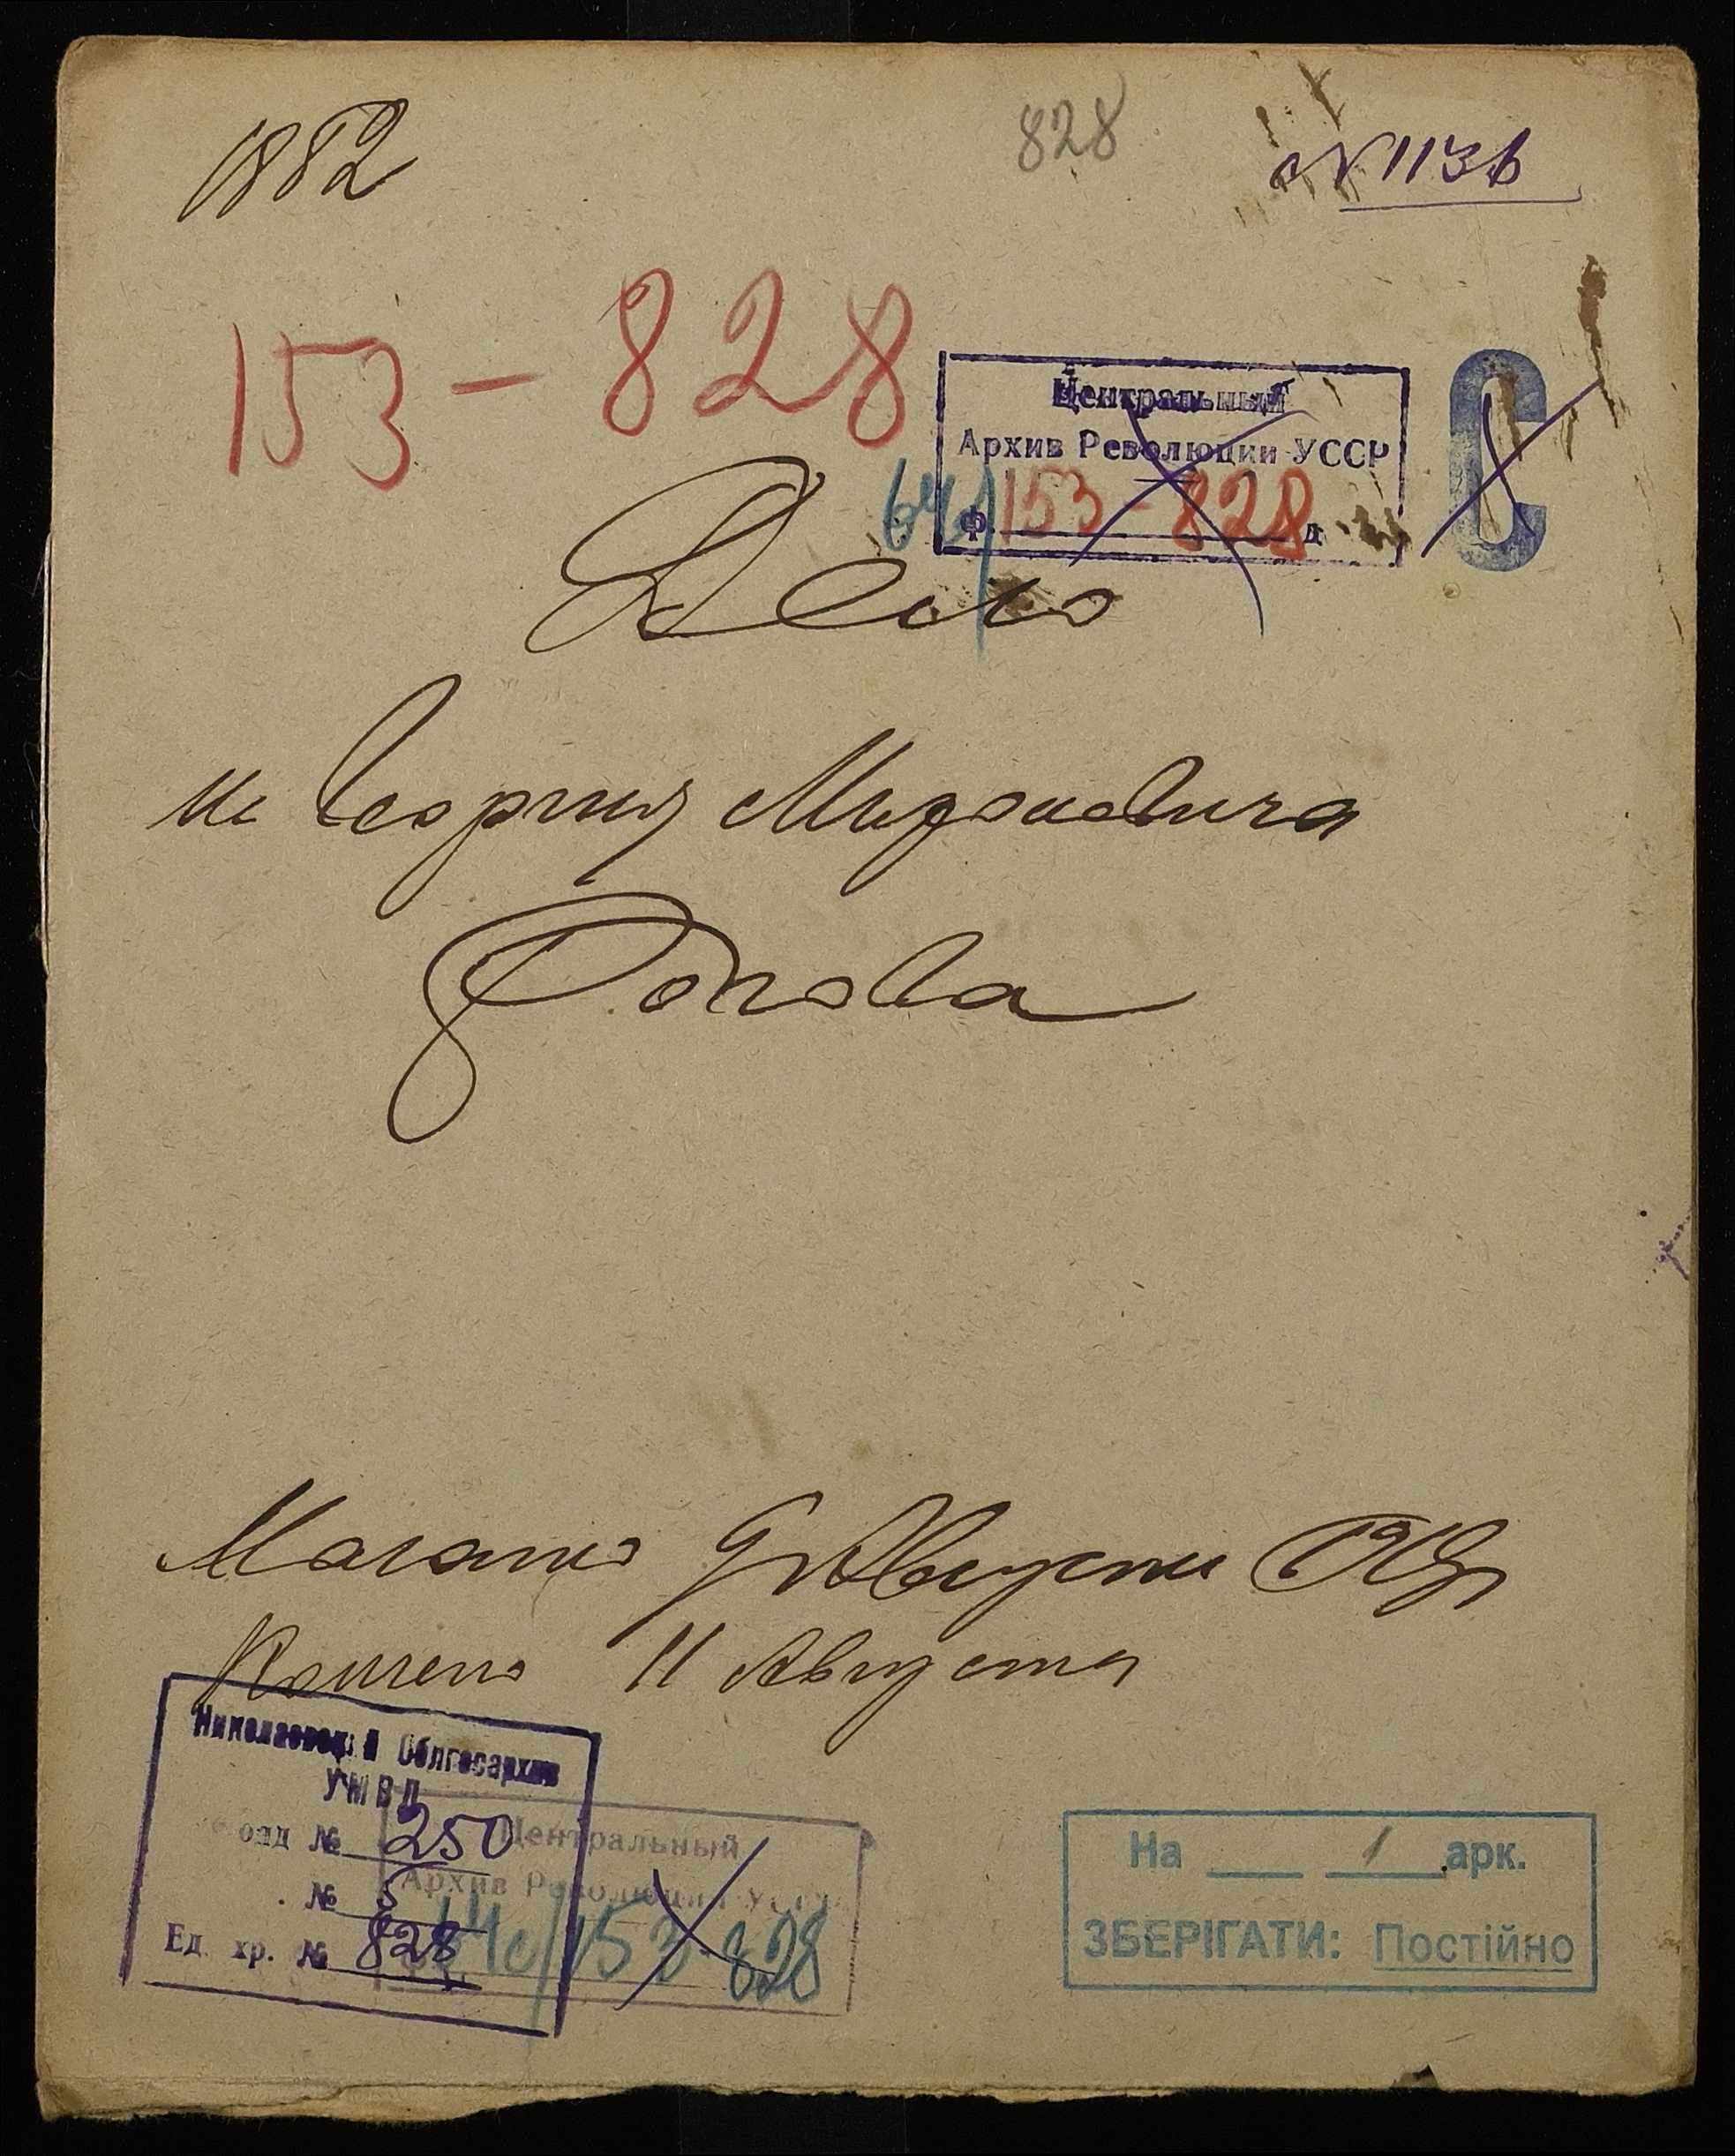 1882
828
№ 1136
153 - 828
Центральный
Архив Революции УССР
ф. 153 - 828 д
С
Дело
Георгия Мироновича
Попова
Начато 9 Августа
Кончено 11 Августа
Николаевский Облгосархив
УМВД
Фонд № 250
№ 5
Ед. хр. № 828
Центральный
Архив Революции УССР
153 828
На 1 арк.
ЗБЕРІГАТИ: Постійно